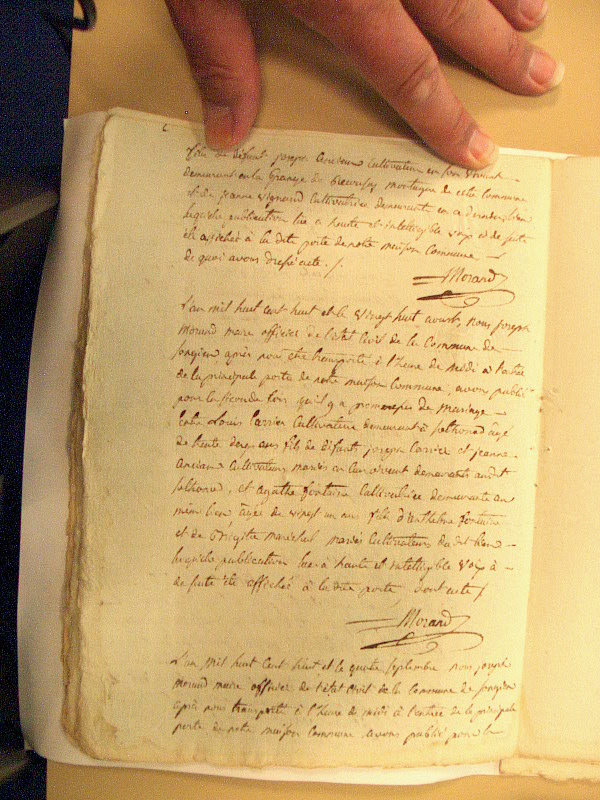 fille de défunt joseph cultivateur en son vivant
demeurant en la grange de montagne de cette commune
et de jeanne vignand cultivatrice demeurante en ce dernier lieu
laquelle publication lue a haute et intelligible voix et de suite
été affichée à la dite porte de notre maison commune
de quoi avons dressé acte ./.
Morand
L'an mil huit cent huit et le vingt huit aoust, nous joseph
morand maire officier de l'état civil de la commune de
songieu, après nous être transporté à l'heure de midi à l'entrée
de la principale porte de notre maison commune, avons publié
pour la seconde fois qu'il y a promesses de mariage
Entre Louis Carrier Cultivateur demeurant à sothonod âgé
de trente deux ans fils de défunts joseph Carrier et jeanne
anciane cultivateurs mariés en leur vivant demeurants audit
sothonod, et agathe fontaine cultivatrice demeurante au
même lieu âgée de vingt un ans fille d'anthelme fontaine
et de maréchal mariés cultivateurs du dit lieu
laquelle publication lue à haute et intelligible voix à
de suite été affichée à la dite porte, dont acte /
Morand
L'an mil huit cent huit, et le quatre septembre nous joseph
morand maire officier de l'état civil de la commune de songieu
après nous transporté à l'heure de midi à l'entrée de la principale
porte de notre maison commune, avons publié pour la